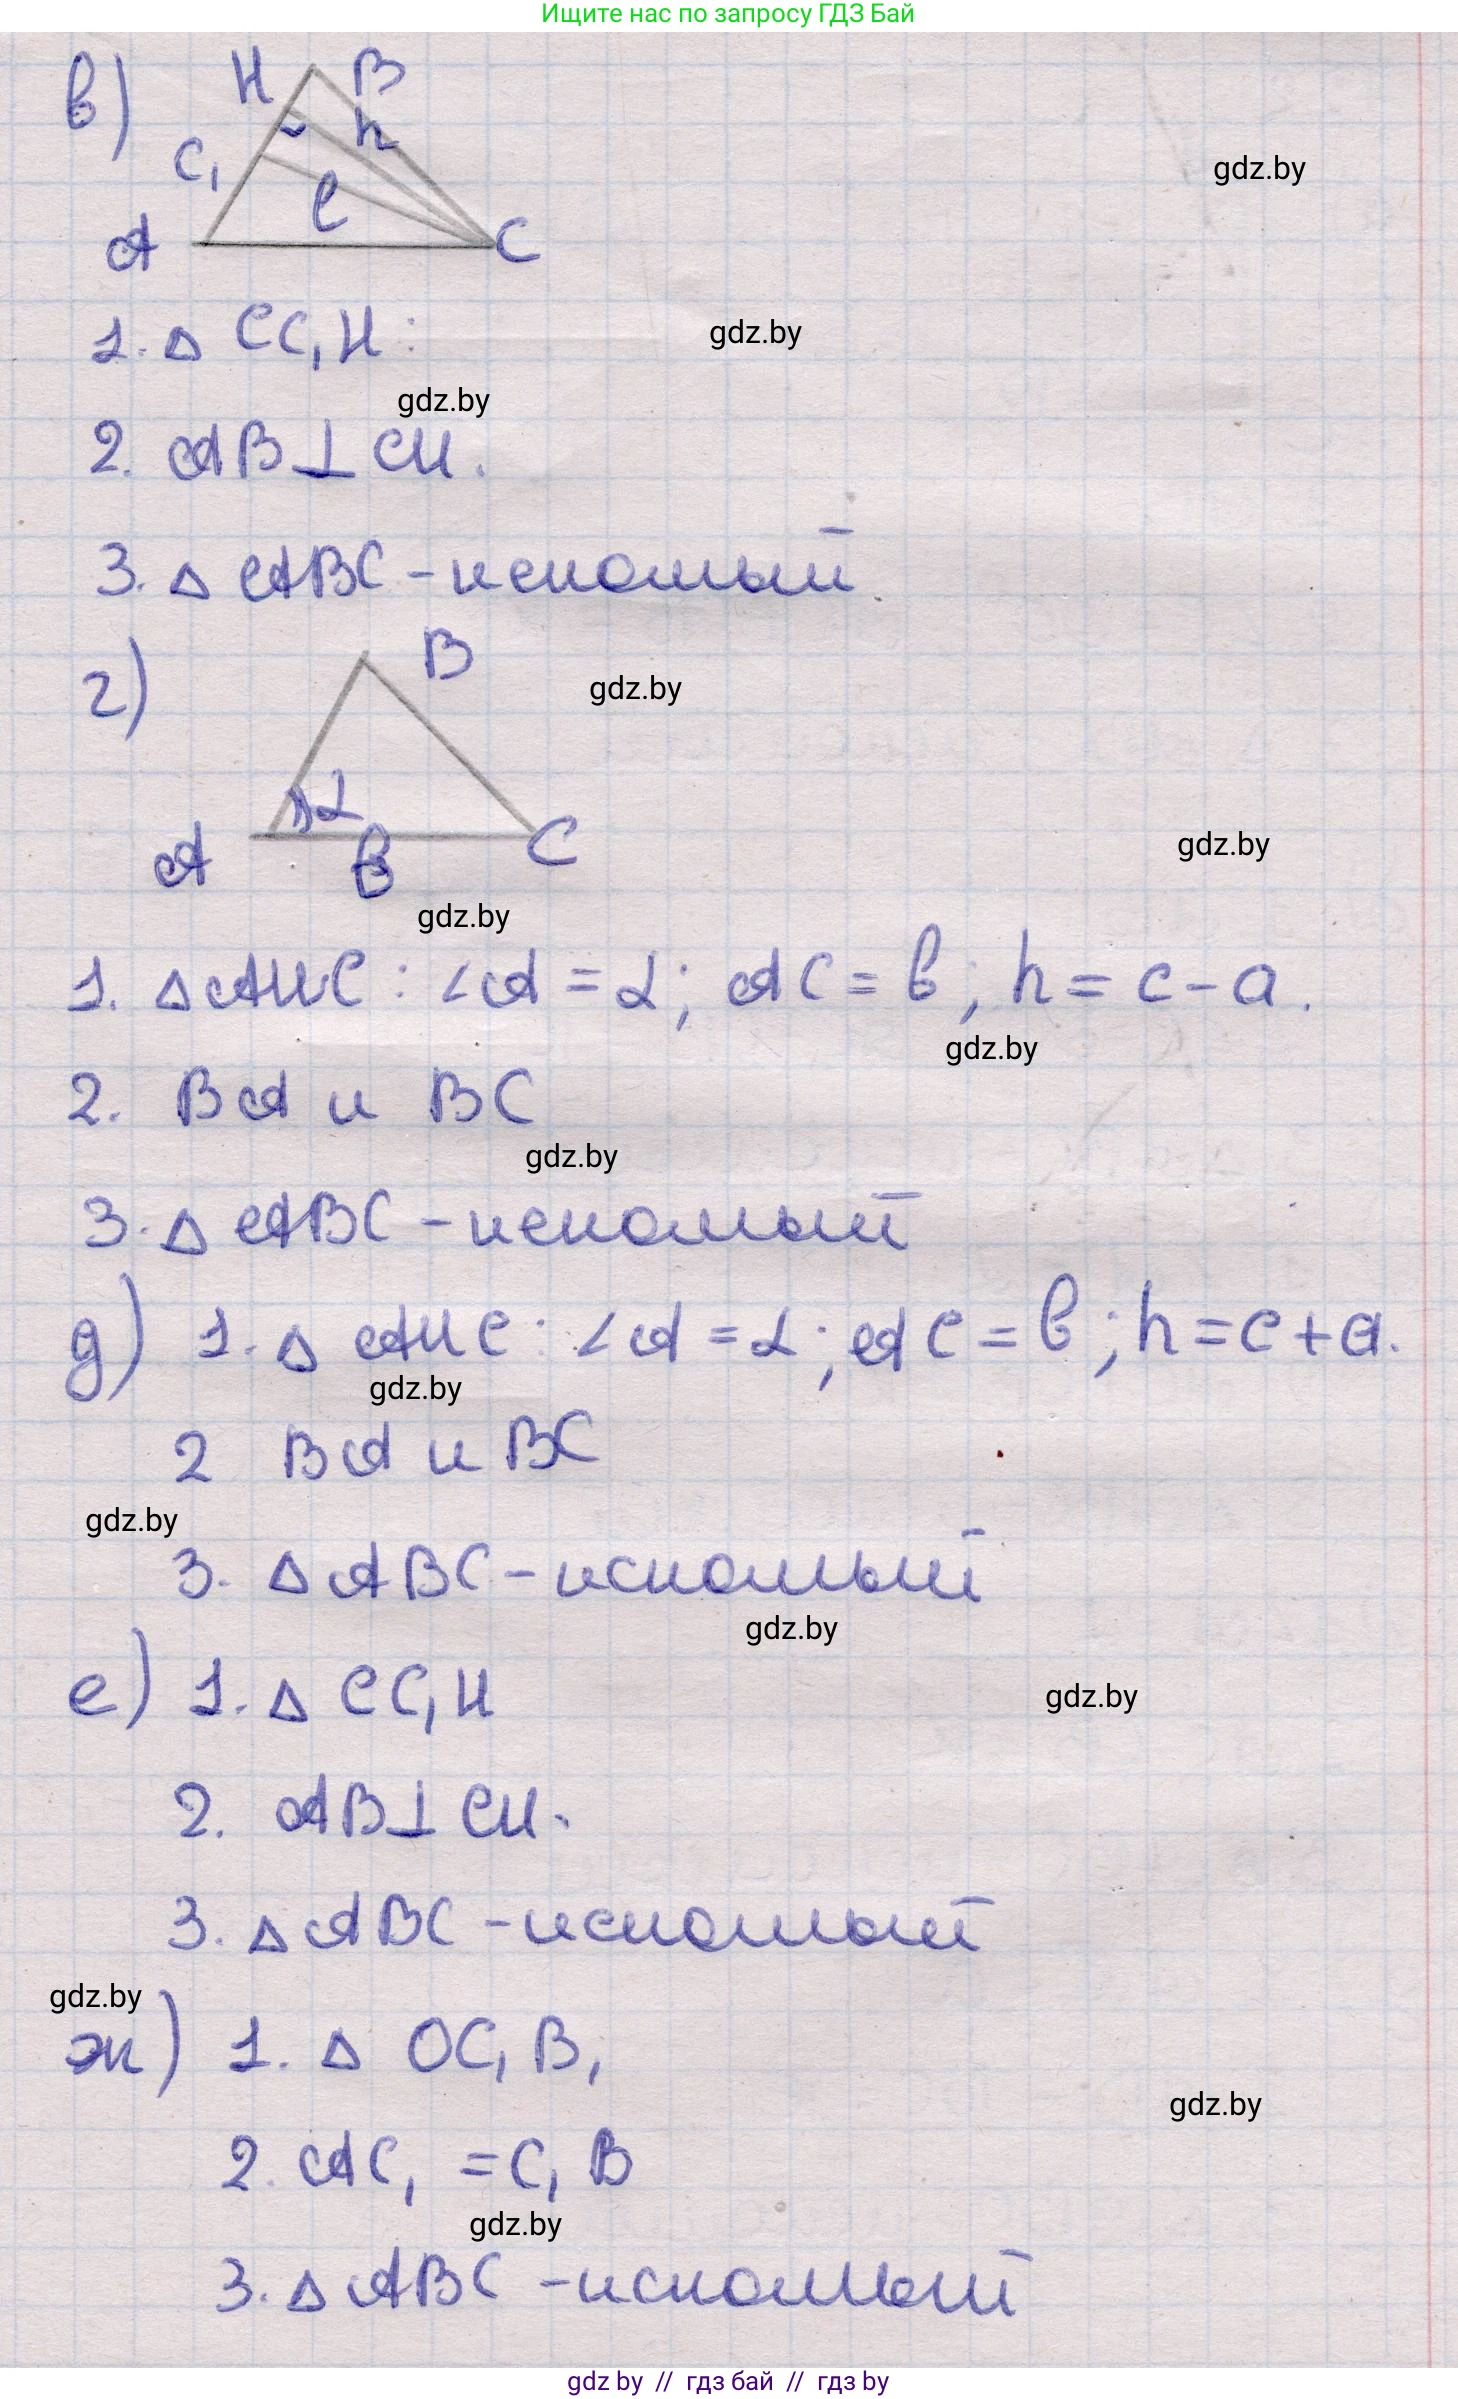 Ищите нас по запросу ГДЗ Бай
в)
H B
h
C₁
l
A C
gdz.by
1. Δ CC₁H:
gdz.by
gdz.by
2. AB⊥CH.
3. Δ ABC - искомый.
г)
B
gdz.by
α
A B C
gdz.by
gdz.by
1. Δ AHC: ∠A = α; AC = b; h = c - a.
gdz.by
2. BA и BC
gdz.by
3. Δ ABC - искомый
д) 1. Δ AHC: ∠A = α; AC = b; h = c + a.
gdz.by
2 BA и BC
gdz.by
3. Δ ABC - искомый
gdz.by
е) 1. Δ CC₁H
gdz.by
2. AB⊥CH.
3. Δ ABC - искомый
gdz.by
ж) 1. Δ OC₁B₁
gdz.by
2. AC₁ = C₁B
gdz.by
3. Δ ABC - искомый
gdz by // гдз бай // гдз by